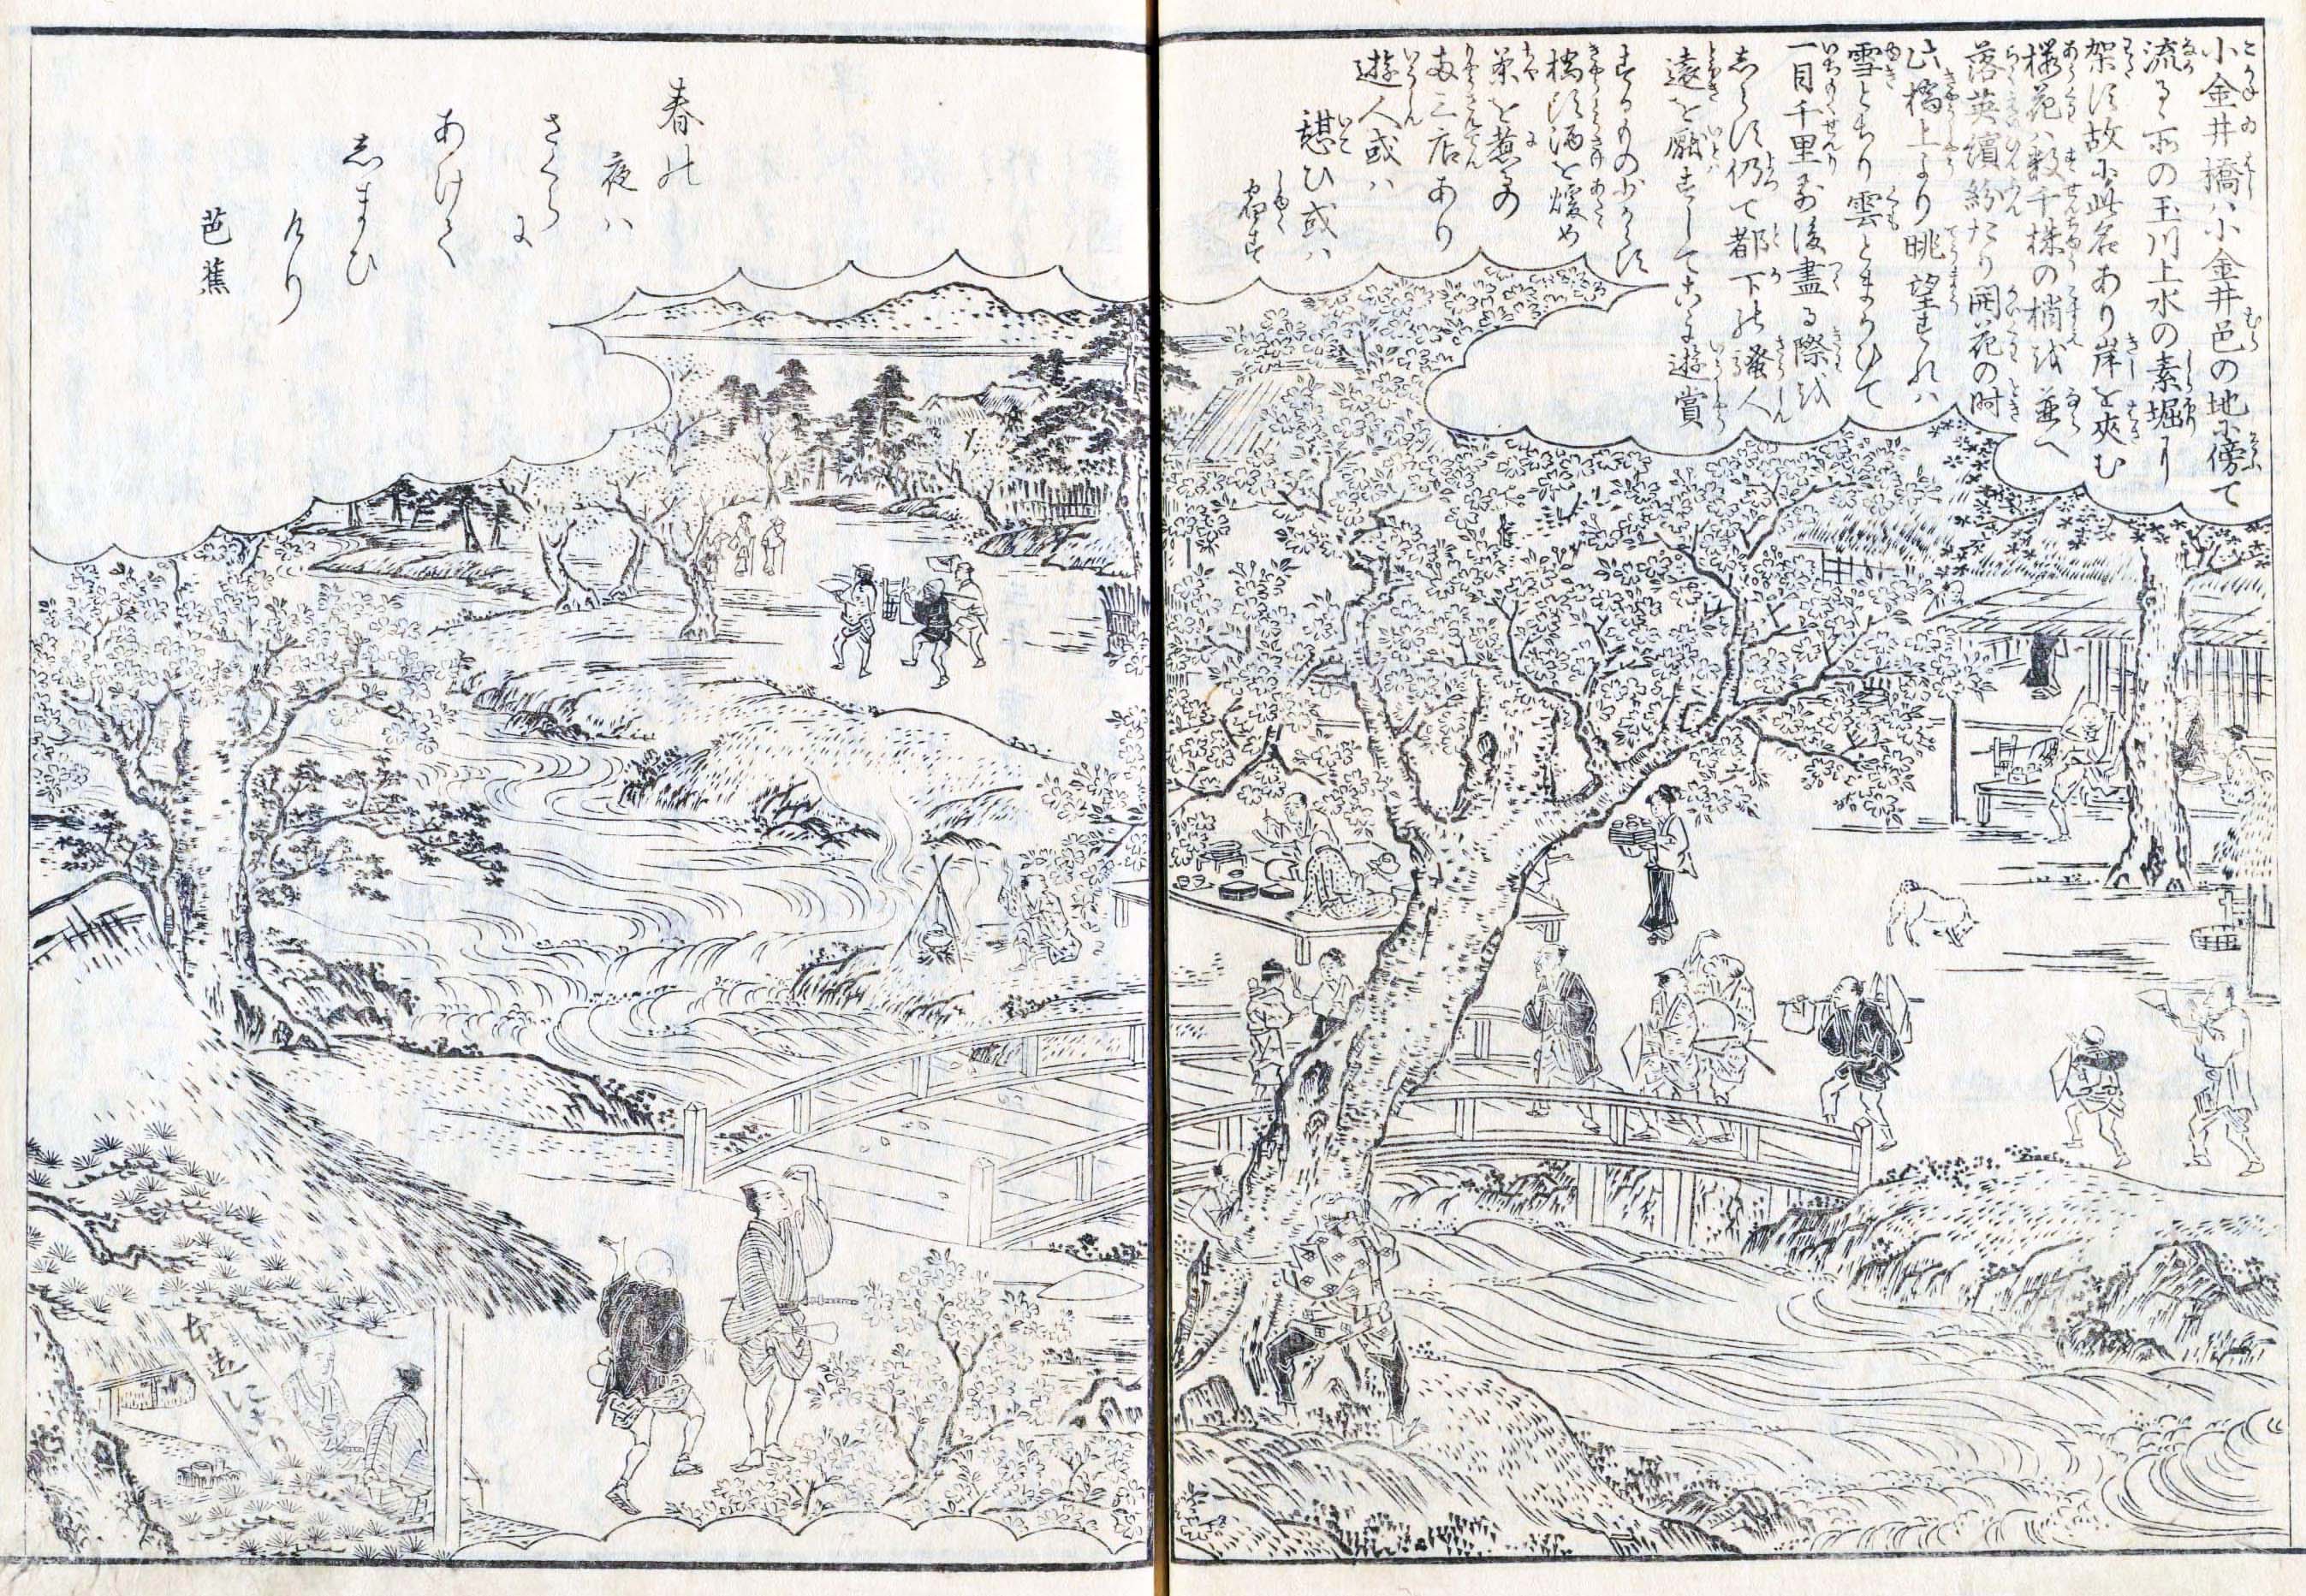 小金井橋ハ小金井邑の地に傍て
流るゝ所の玉川上水の素堀に
架す故に此名あり岸を夾む
桜花ハ数千株の梢を並へ
落英繽紛たり開花の時
此橋上より眺望すれハ
雪とちり雲とまかひて
一目千里前後盡る際を
しらす仍て都下の騒人
遠を厭すしてこゝに遊賞
するもの少からす
橋頭酒を煖め
茶を煮るの
両三店あり
遊人或ハ
憩ひ或ハ
宿す
春の
夜ハ
さくら
に
あけて
しまひ
けり
芭蕉